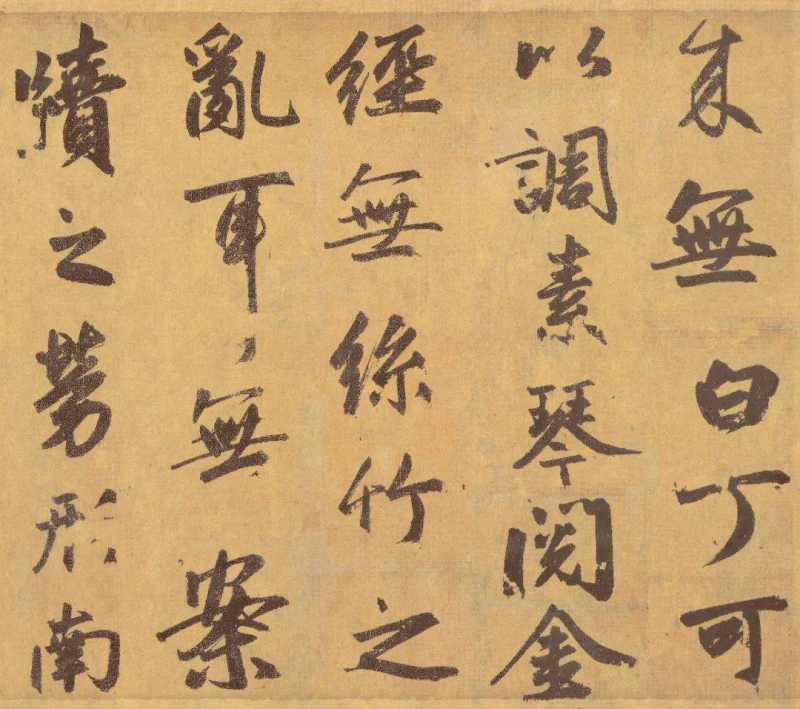 来無白丁可
以調素琴閱金
經無絲竹之
亂耳無案
牘之勞形南